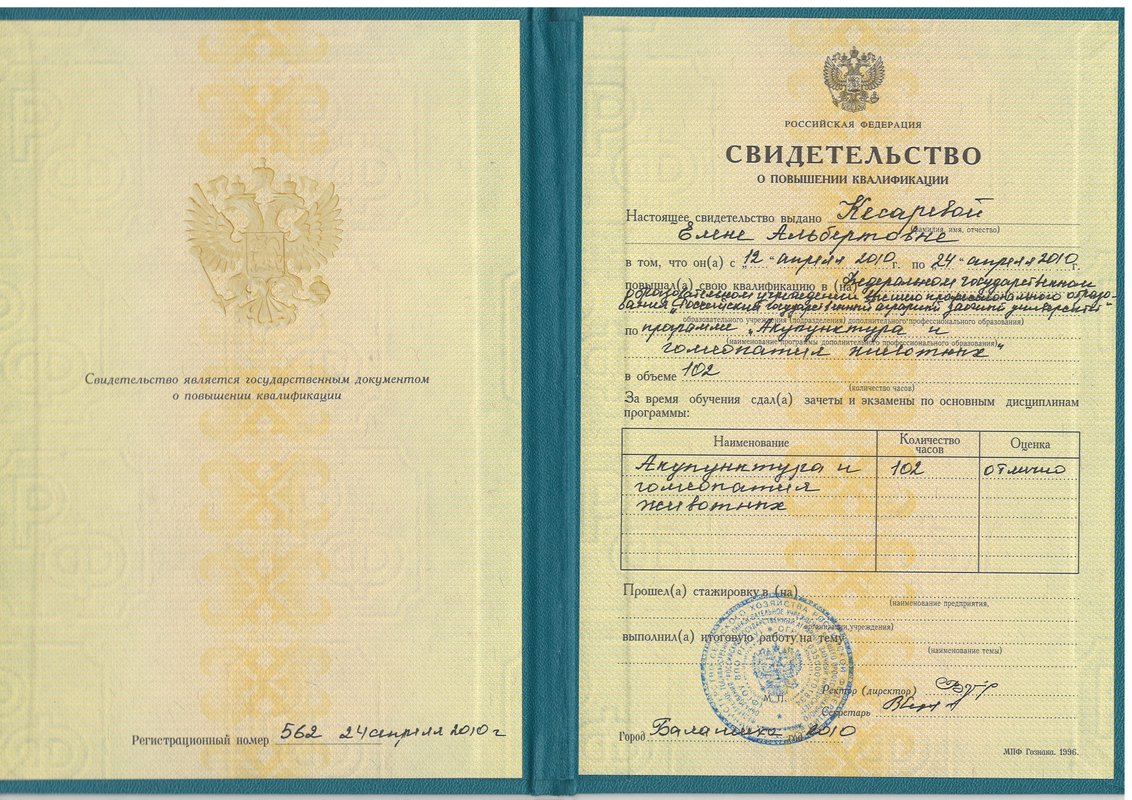 Свидетельство является государственным документом
о повышении квалификации
Регистрационный номер 562 24 апреля 2010 г
РОССИЙСКАЯ ФЕДЕРАЦИЯ
СВИДЕТЕЛЬСТВО
О ПОВЫШЕНИИ КВАЛИФИКАЦИИ
Настоящее свидетельство выдано Кесаревой
(фамилия, имя, отчество)
Елене Альбертовне
в том, что он(а) с „12“ апреля 2010 г. по „24“ апреля 2010 г.
повышал(а) свою квалификацию в (на) Федеральном государственном
образовательном учреждении высшего профессионального образо-
вания „Российский государственный аграрный заочный университет“
образовательного учреждения (подразделения) дополнительного профессионального образования)
по программе „Акупунктура и
(наименование программы дополнительного профессионального образования)
гомеопатия животных“
в объеме 102
(количество часов)
За время обучения сдал(а) зачеты и экзамены по основным дисциплинам
программы:
Наименование Количество часов Оценка
Акупунктура и 102 отлично
гомеопатия
животных
Прошел(а) стажировку в (на)
(наименование предприятия,
организации, учреждения)
выполнил(а) итоговую работу на тему
(наименование темы)
М. П.
Ректор (директор)
Секретарь
Город Балашиха год 2010
МПФ Гознака. 1996.